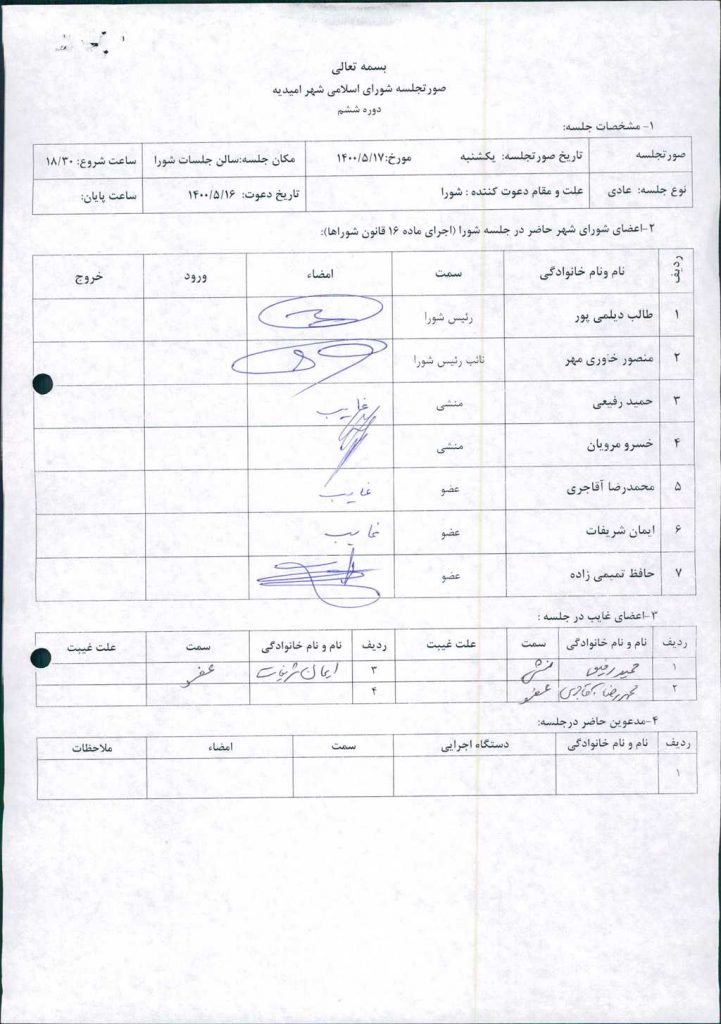 بسمه تعالی
صورتجلسه شورای اسلامی شهر امیدیه
دوره ششم
۱- مشخصات جلسه:
صورتجلسه تاریخ صورتجلسه: یکشنبه مورخ:۱۴۰۰/۵/۱۷ مکان جلسه:سالن جلسات شورا ساعت شروع: ۱۸/۳۰
نوع جلسه: عادی علت و مقام دعوت کننده : شورا تاریخ دعوت: ۱۴۰۰/۵/۱۶ ساعت پایان:
۲-اعضای شورای شهر حاضر در جلسه شورا (اجرای ماده ۱۶ قانون شوراها):
ردیف نام ونام خانوادگی سمت امضاء ورود خروج
۱ طالب دیلمی پور رئیس شورا
۲ منصور خاوری مهر نائب رئیس شورا
۳ حمید رفیعی منشی غایب
۴ خسرو مرویان منشی
۵ محمدرضا آقاجری عضو غایب
۶ ایمان شریفات عضو غایب
۷ حافظ تمیمی زاده عضو
۳-اعضای غایب در جلسه :
ردیف نام و نام خانوادگی سمت علت غیبت ردیف نام و نام خانوادگی سمت علت غیبت
۱ حمید رفیعی منشی ۳ ایمان شریفات عضو
۲ محمدرضا آقاجری عضو ۴
۴-مدعوین حاضر درجلسه:
ردیف نام و نام خانوادگی دستگاه اجرایی سمت امضاء ملاحظات
۱